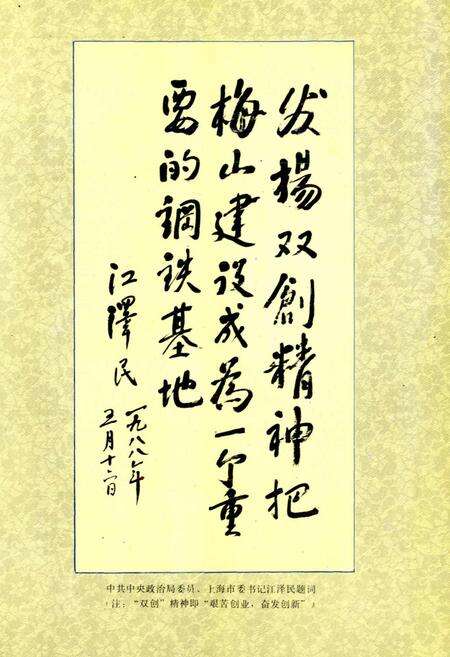 发揚双創精神把
梅山建设成為一个重
要的钢铁基地
江澤民
一九八八年
五月十二日
中共中央政治局委员、上海市委书记江泽民题词
（注：“双创”精神即“艰苦创业，奋发创新”）